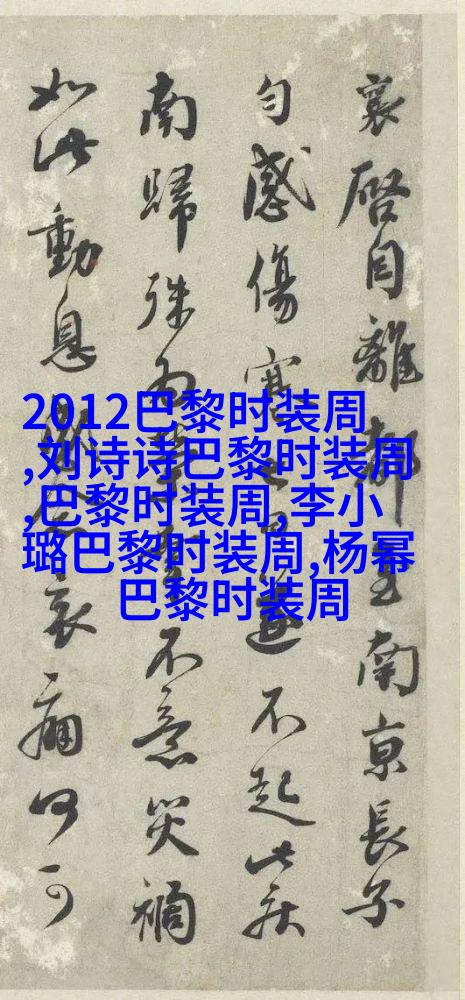 襄啓自離都至南京長子
勻感傷寒遂不起此疾
南歸殊為不意災禍
如此動息哀痛何可
2012巴黎时装周
,刘诗诗巴黎时装周
,巴黎时装周,李小
璐巴黎时装周,杨幂
巴黎时装周